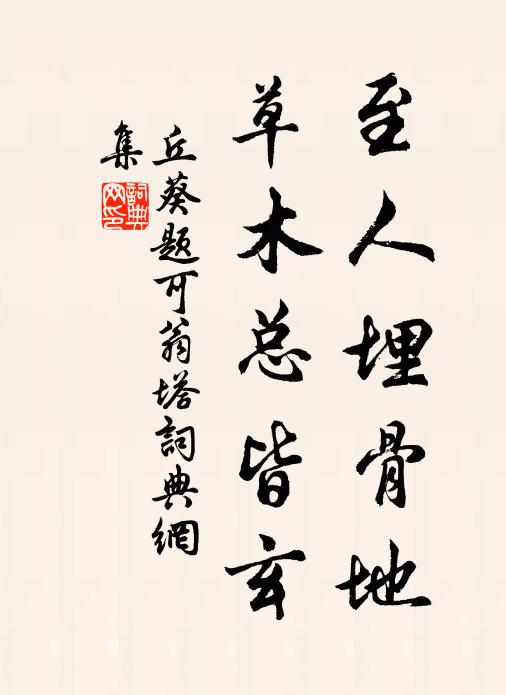 至人埋骨地
草木总皆玄
丘葵题可翁塔詞典網
集
詞典网印